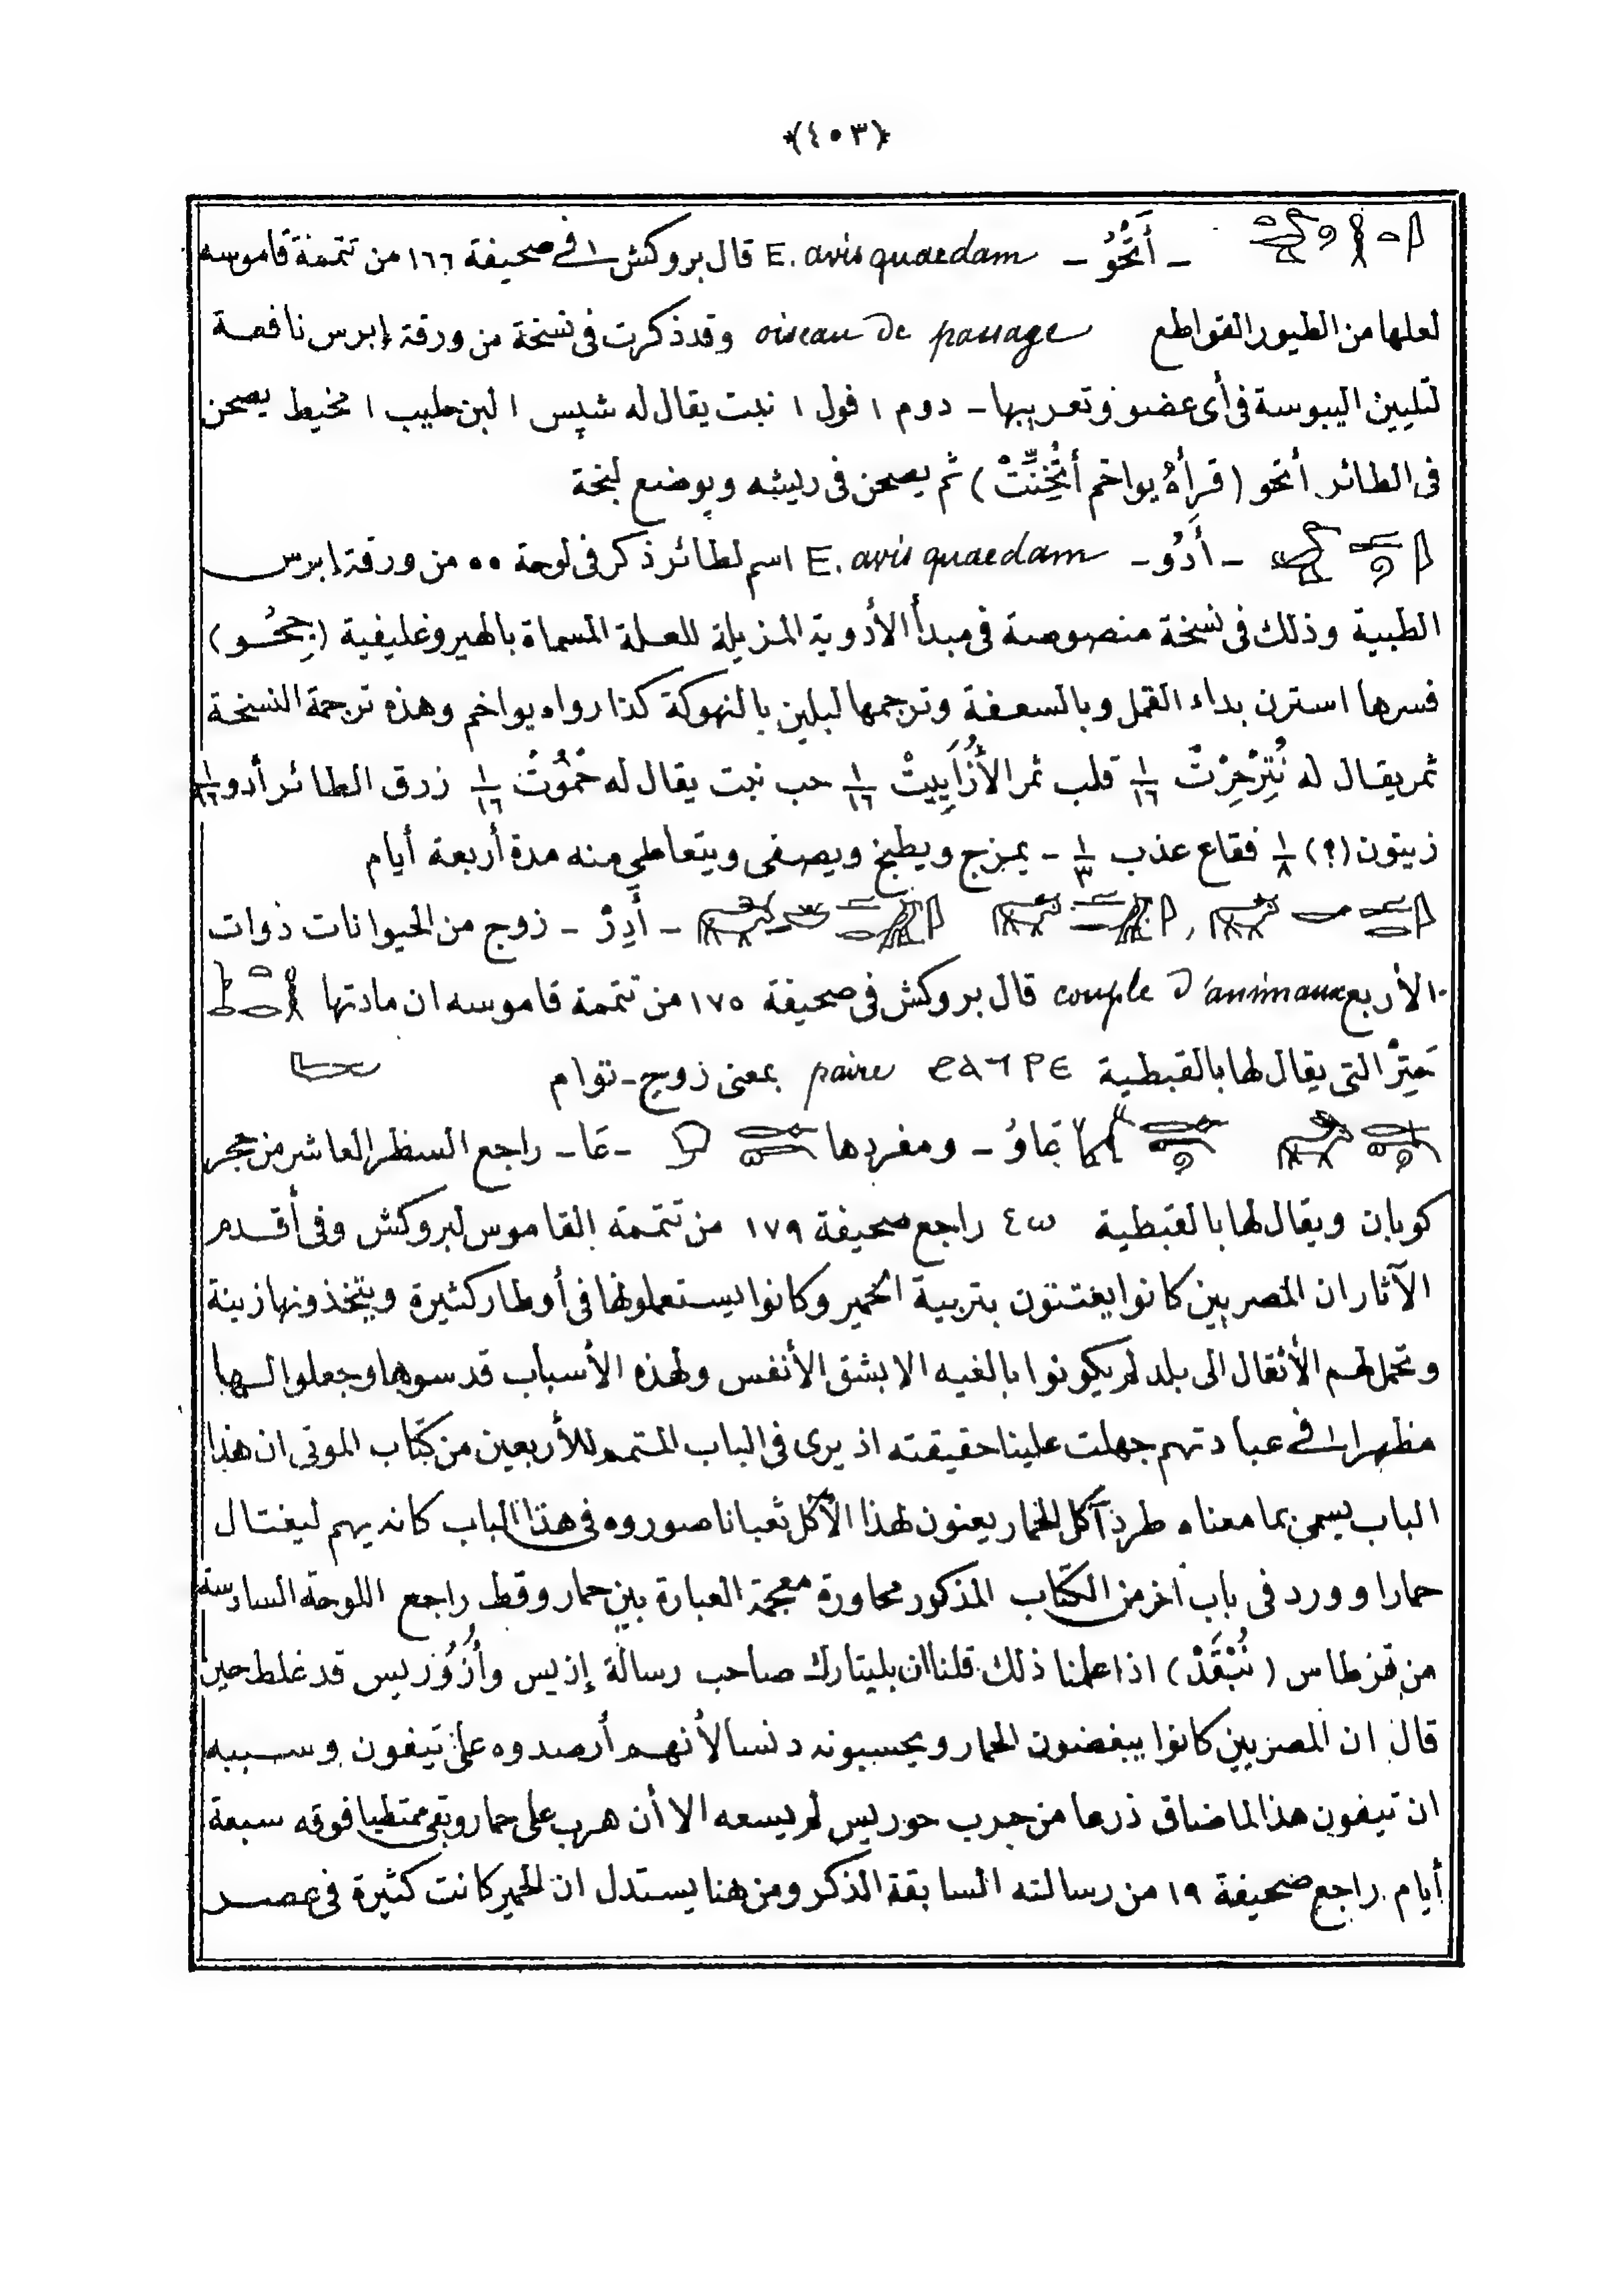 ﴿٤٠٣﴾
- أَتَّحُوُ - E. avis quaedam قال بروكش فى صحيفة ١٦٦ من تتمة قاموسه
لعلها من الطيور القواطع oiseau de passage وقد ذكرت فى نسخة من ورقة إبرس نافعة
لتليين اليبوسة فى أى عضو وتعريبها - دوم ١ فول ١ نبت يقال له شپس ١ لبن حليب ١ مخيط يصحن
فى الطائر أتحو (قرأهُ يواخم أتُّخِنِّتْ) ثم يصحن فى ريشه ويوضع لبخة
- أَدُو - E. avis quaedam اسم لطائر ذكر فى لوحة ٥٥ من ورقة إبرس
الطبية وذلك فى نسخة منصوصة فى مبدأ الأدوية المزيلة للعلة المسماة بالهيروغليفية (جِحُـو)
فسرها استرن بداء القمل وبالسعفة وترجمها لبلين بالنهوكة كذا رواه يواخم وهذه ترجمة النسخة
ثمر يقال له نُتِرْحِرْتْ ١/١٦ قلب ثمر الأُزَاَيِيتْ ١/١٦ حب نبت يقال له حْمُوُتْ ١/١٦ زرق الطائر أدو ١/١٦
زيتون (؟) ١/٨ فقاع عذب ١/٣ - يمزج ويطبخ ويصفى ويتعاطى منه مدة أربعة أيام
- أَدِرْ - زوج من الحيوانات ذوات
الأربع couple d'animaux قال بروكش فى صحيفة ١٧٥ من تتمة قاموسه ان مادتها
حَتِرْ التى يقال لها بالقبطية ϩⲁⲧⲣⲉ paire بمعنى زوج - توام
عَاوُ - ومفردها - عَا - راجع السطر العاشر من حجر
كوبان ويقال لها بالقبطية ⲉⲱ راجع صحيفة ١٧٩ من تتمة القاموس لبروكش وفى أقدم
الآثار ان المصريين كانوا يعتنون بتربية الحمير وكانوا يستعملونها فى أوطار كثيرة ويتخذونها زينة
وتحمل لهم الأثقال الى بلد لم يكونوا بالغيه الا بشق الأنفس ولهذه الأسباب قدسوها وجعلوا لها
مظهرا فى عبادتهم جهلت علينا حقيقته اذ يرى فى الباب المتمم للأربعين من كتاب الموتى ان هذا
الباب يسمى بما معناه طرد آكل الحمار يعنون لهذا الآكل ثعبانا صوروه فى هذا الباب كانه يهم ليغتال
حمارا وورد فى باب آخر من الكتاب المذكور محاورة معجمة العبارة بين حمار وقط راجع اللوحة السادسة
من قرطاس (نُبْقَدْ) اذا علمنا ذلك قلنا ان بليتارك صاحب رسالة إزيس وأُزُوُرِيس قد غلط حين
قال ان المصريين كانوا يبغضون الحمار ويحسبونه دنسا لأنهم أرصدوه على تيفون وسببه
ان تيفون هذا لما ضاق ذرعا من حرب حوريس لم يسعه الا أن هرب على حمار وبقى ممتطيا فوقه سبعة
أيام راجع صحيفة ١٩ من رسالته السابقة الذكر ومن هنا يستدل ان الحمير كانت كثيرة فى عصر